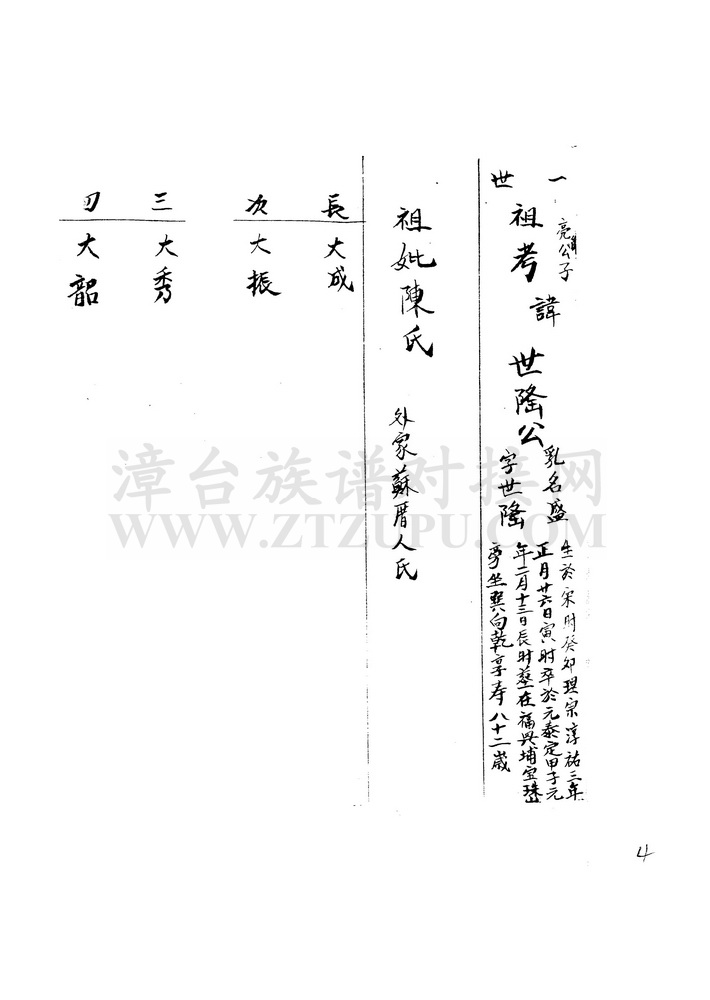 一世
亮公子
祖考諱世隆公
乳名盛
字世隆
生於宋时癸卯理宗淳祐三年
正月廿六日寅时卒於元泰定甲子元
年二月十三日辰时塟在福興埔宝珠
旁坐巽向乾享寿八十二歲
祖妣陳氏
外家蘇厝人氏
長大成
次大振
三大秀
四大韶
漳台族谱对接网
WWW.ZTZUPU.COM
4